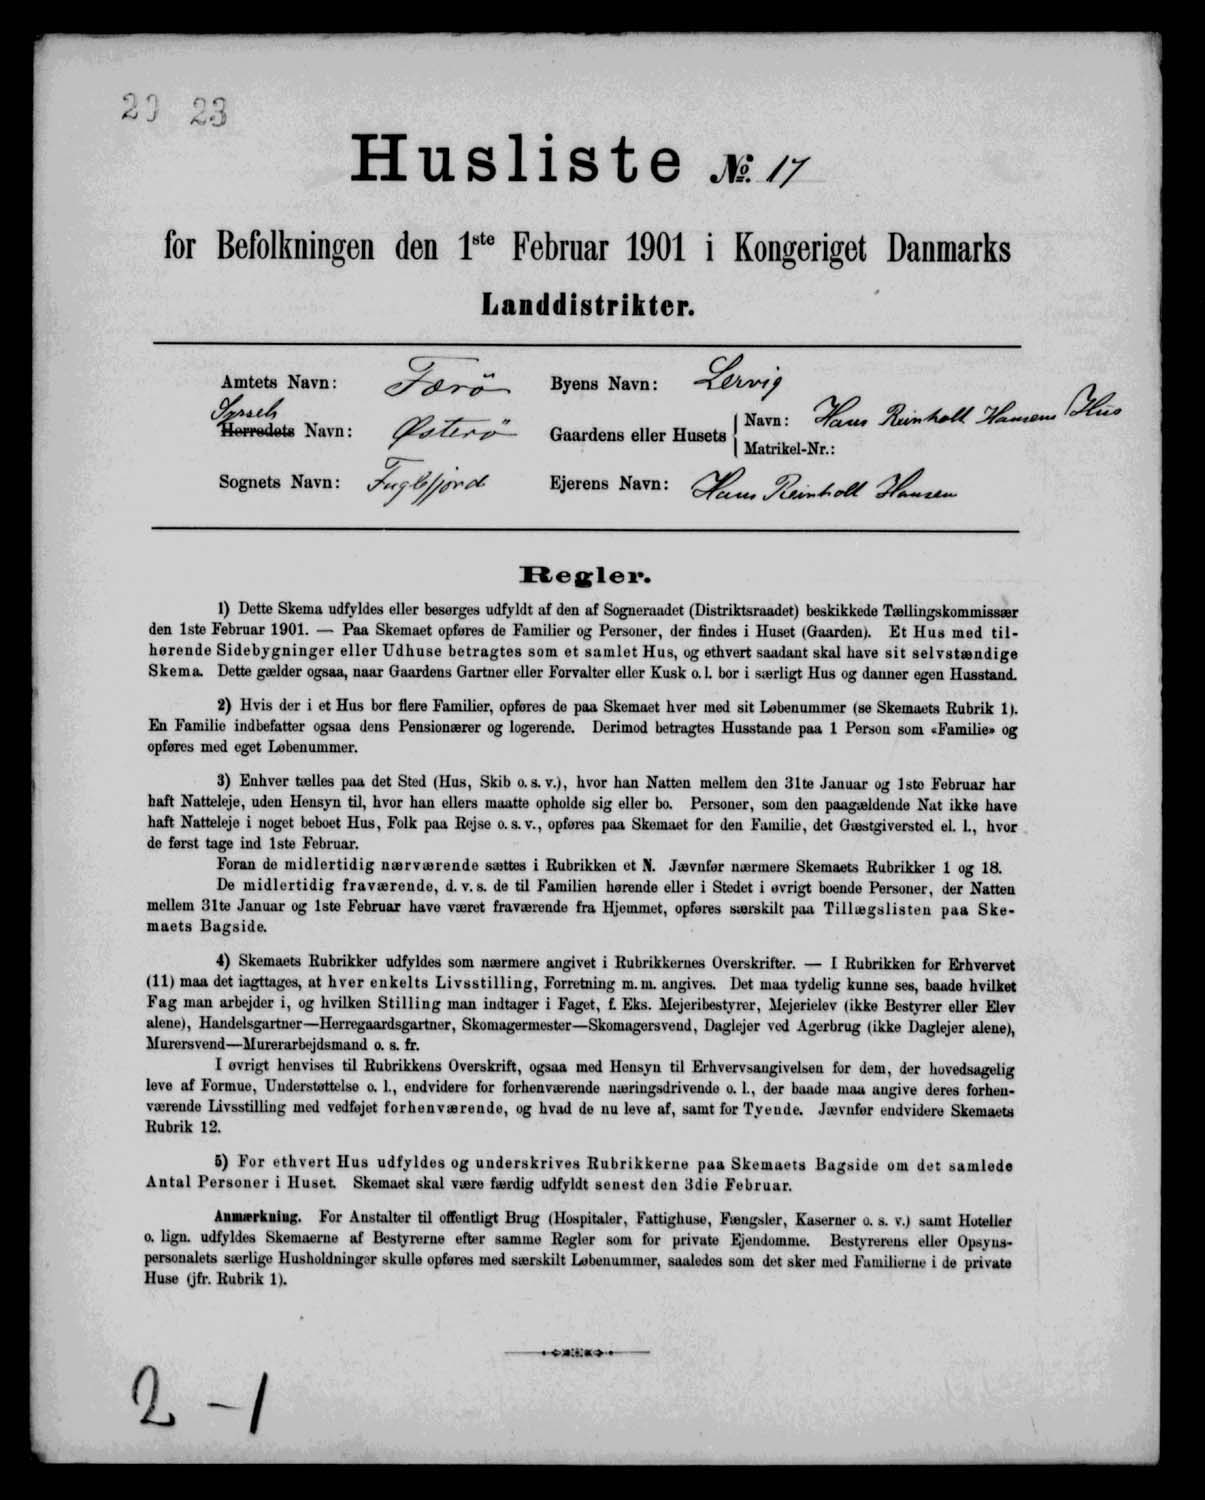 20 23
Husliste №. 17
for Befolkningen den 1ste Februar 1901 i Kongeriget Danmarks
Landdistrikter.
Amtets Navn: Færö
Byens Navn: Lervig
Syssels
Herredets Navn: Österö
Gaardens eller Husets
Navn: Hans Reinholt Hansens Hus
Matrikel-Nr.:
Sognets Navn: Fuglefjord
Ejerens Navn: Hans Reinholt Hansen
Regler.
1) Dette Skema udfyldes eller besørges udfyldt af den af Sogneraadet (Distriktsraadet) beskikkede Tællingskommissær
den 1ste Februar 1901. — Paa Skemaet opføres de Familier og Personer, der findes i Huset (Gaarden). Et Hus med til-
hørende Sidebygninger eller Udhuse betragtes som et samlet Hus, og ethvert saadant skal have sit selvstændige
Skema. Dette gælder ogsaa, naar Gaardens Gartner eller Forvalter eller Kusk o. l. bor i særligt Hus og danner egen Husstand.
2) Hvis der i et Hus bor flere Familier, opføres de paa Skemaet hver med sit Løbenummer (se Skemaets Rubrik 1).
En Familie indbefatter ogsaa dens Pensionærer og logerende. Derimod betragtes Husstande paa 1 Person som «Familie» og
opføres med eget Løbenummer.
3) Enhver tælles paa det Sted (Hus, Skib o. s. v.), hvor han Natten mellem den 31te Januar og 1ste Februar har
haft Natteleje, uden Hensyn til, hvor han ellers maatte opholde sig eller bo. Personer, som den paagældende Nat ikke have
haft Natteleje i noget beboet Hus, Folk paa Rejse o. s. v., opføres paa Skemaet for den Familie, det Gæstgiversted el. l., hvor
de først tage ind 1ste Februar.
Foran de midlertidig nærværende sættes i Rubrikken et N. Jævnfør nærmere Skemaets Rubrikker 1 og 18.
De midlertidig fraværende, d. v. s. de til Familien hørende eller i Stedet i øvrigt boende Personer, der Natten
mellem 31te Januar og 1ste Februar have været fraværende fra Hjemmet, opføres særskilt paa Tillægslisten paa Ske-
maets Bagside.
4) Skemaets Rubrikker udfyldes som nærmere angivet i Rubrikkernes Overskrifter. — I Rubrikken for Erhvervet
(11) maa det iagttages, at hver enkelts Livsstilling, Forretning m. m. angives. Det maa tydelig kunne ses, baade hvilket
Fag man arbejder i, og hvilken Stilling man indtager i Faget, f. Eks. Mejeribestyrer, Mejerielev (ikke Bestyrer eller Elev
alene), Handelsgartner—Herregaardsgartner, Skomagermester—Skomagersvend, Daglejer ved Agerbrug (ikke Daglejer alene),
Murersvend—Murerarbejdsmand o. s. fr.
I øvrigt henvises til Rubrikkens Overskrift, ogsaa med Hensyn til Erhvervsangivelsen for dem, der hovedsagelig
leve af Formue, Understøttelse o. l., endvidere for forhenværende næringsdrivende o. l., der baade maa angive deres forhen-
værende Livsstilling med vedføjet forhenværende, og hvad de nu leve af, samt for Tyende. Jævnfør endvidere Skemaets
Rubrik 12.
5) For ethvert Hus udfyldes og underskrives Rubrikkerne paa Skemaets Bagside om det samlede
Antal Personer i Huset. Skemaet skal være færdig udfyldt senest den 3die Februar.
Anmærkning. For Anstalter til offentligt Brug (Hospitaler, Fattighuse, Fængsler, Kaserner o. s. v.) samt Hoteller
o. lign. udfyldes Skemaerne af Bestyrerne efter samme Regler som for private Ejendomme. Bestyrerens eller Opsyns-
personalets særlige Husholdninger skulle opføres med særskilt Løbenummer, saaledes som det sker med Familierne i de private
Huse (jfr. Rubrik 1).
2 - 1